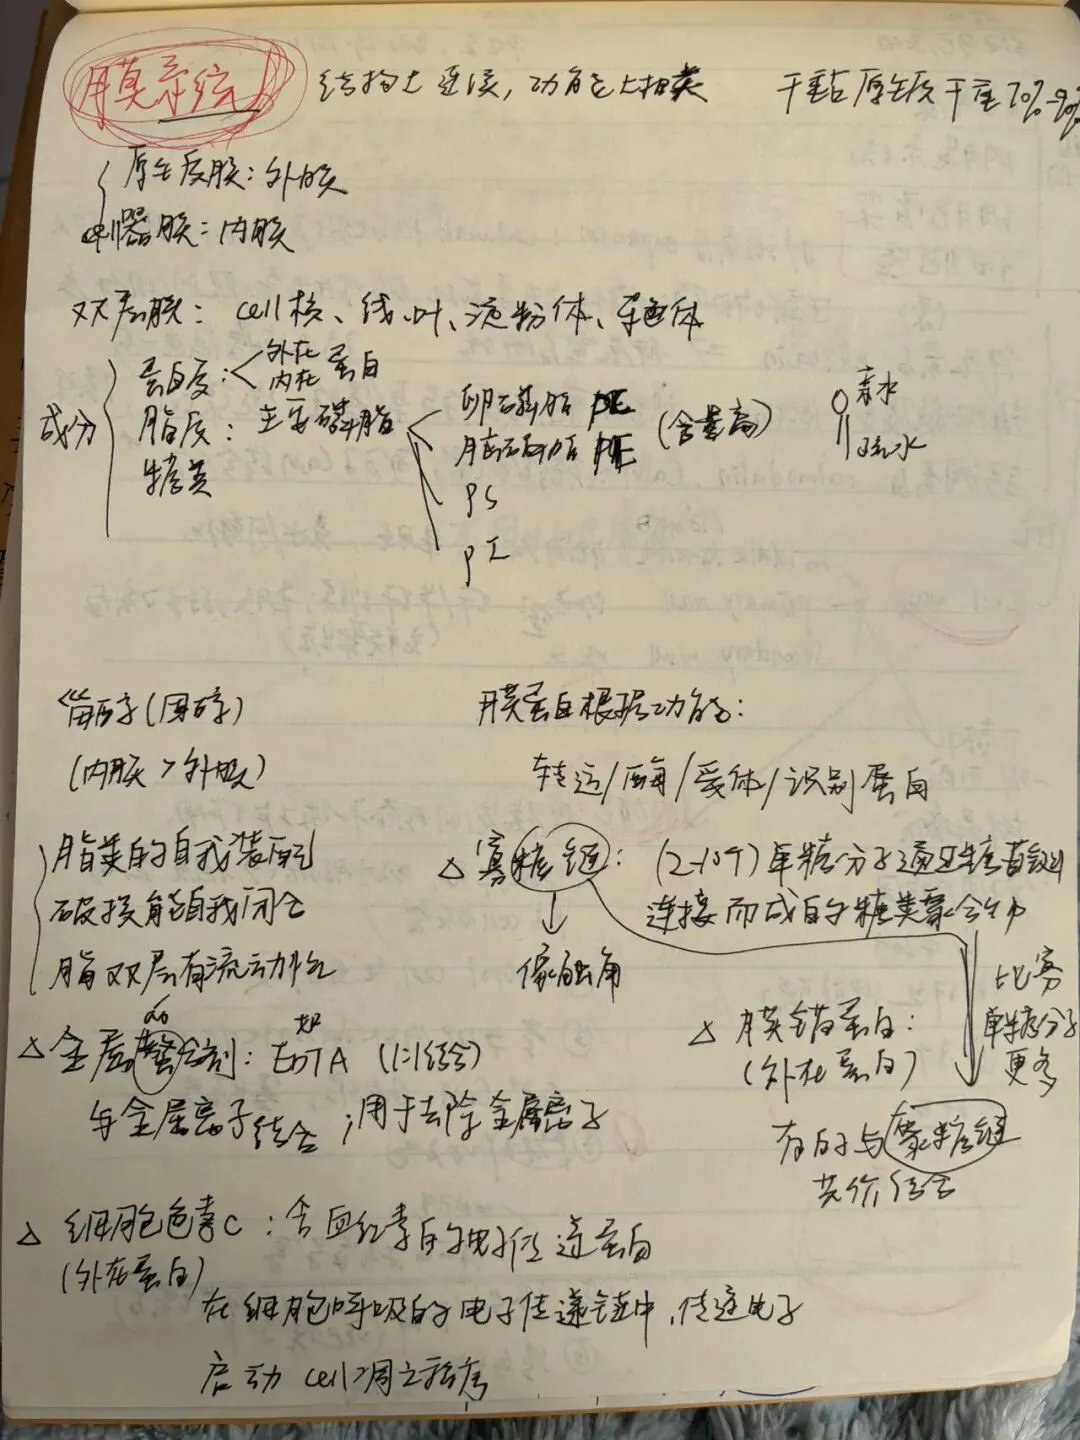 膜系统 结构上连续,功能上相关 干重占原生质干重70%-90%
原生质膜:外膜
细胞器膜:内膜
双层膜:cell核、线、叶、淀粉体、杂色体
成分
蛋白质:外在 内在 蛋白
脂质:主要磷脂
糖类
卵磷脂 PC
脑磷脂 PE
(含量高)
PS
PI
亲水
疏水
甾醇(固醇)
(内膜>外膜)
膜蛋白根据功能:
转运/酶/受体/识别蛋白
脂类的自我装配
破损能自我闭合
脂双层有流动性
△ 寡糖链:(2-10个)单糖分子通过糖苷键
连接而成的糖类聚合物
像触角
比寡
单糖分子
更多
△ 膜锚蛋白:
(外在蛋白)
有的与聚糖链
共价结合
△ 金属螯合剂:如 EDTA (1:1结合)
áo
与金属离子结合;用于去除金属离子
△ 细胞色素C:含血红素的电子传递蛋白
(外在蛋白)
在细胞呼吸的电子传递链中,传递电子
启动cell凋亡